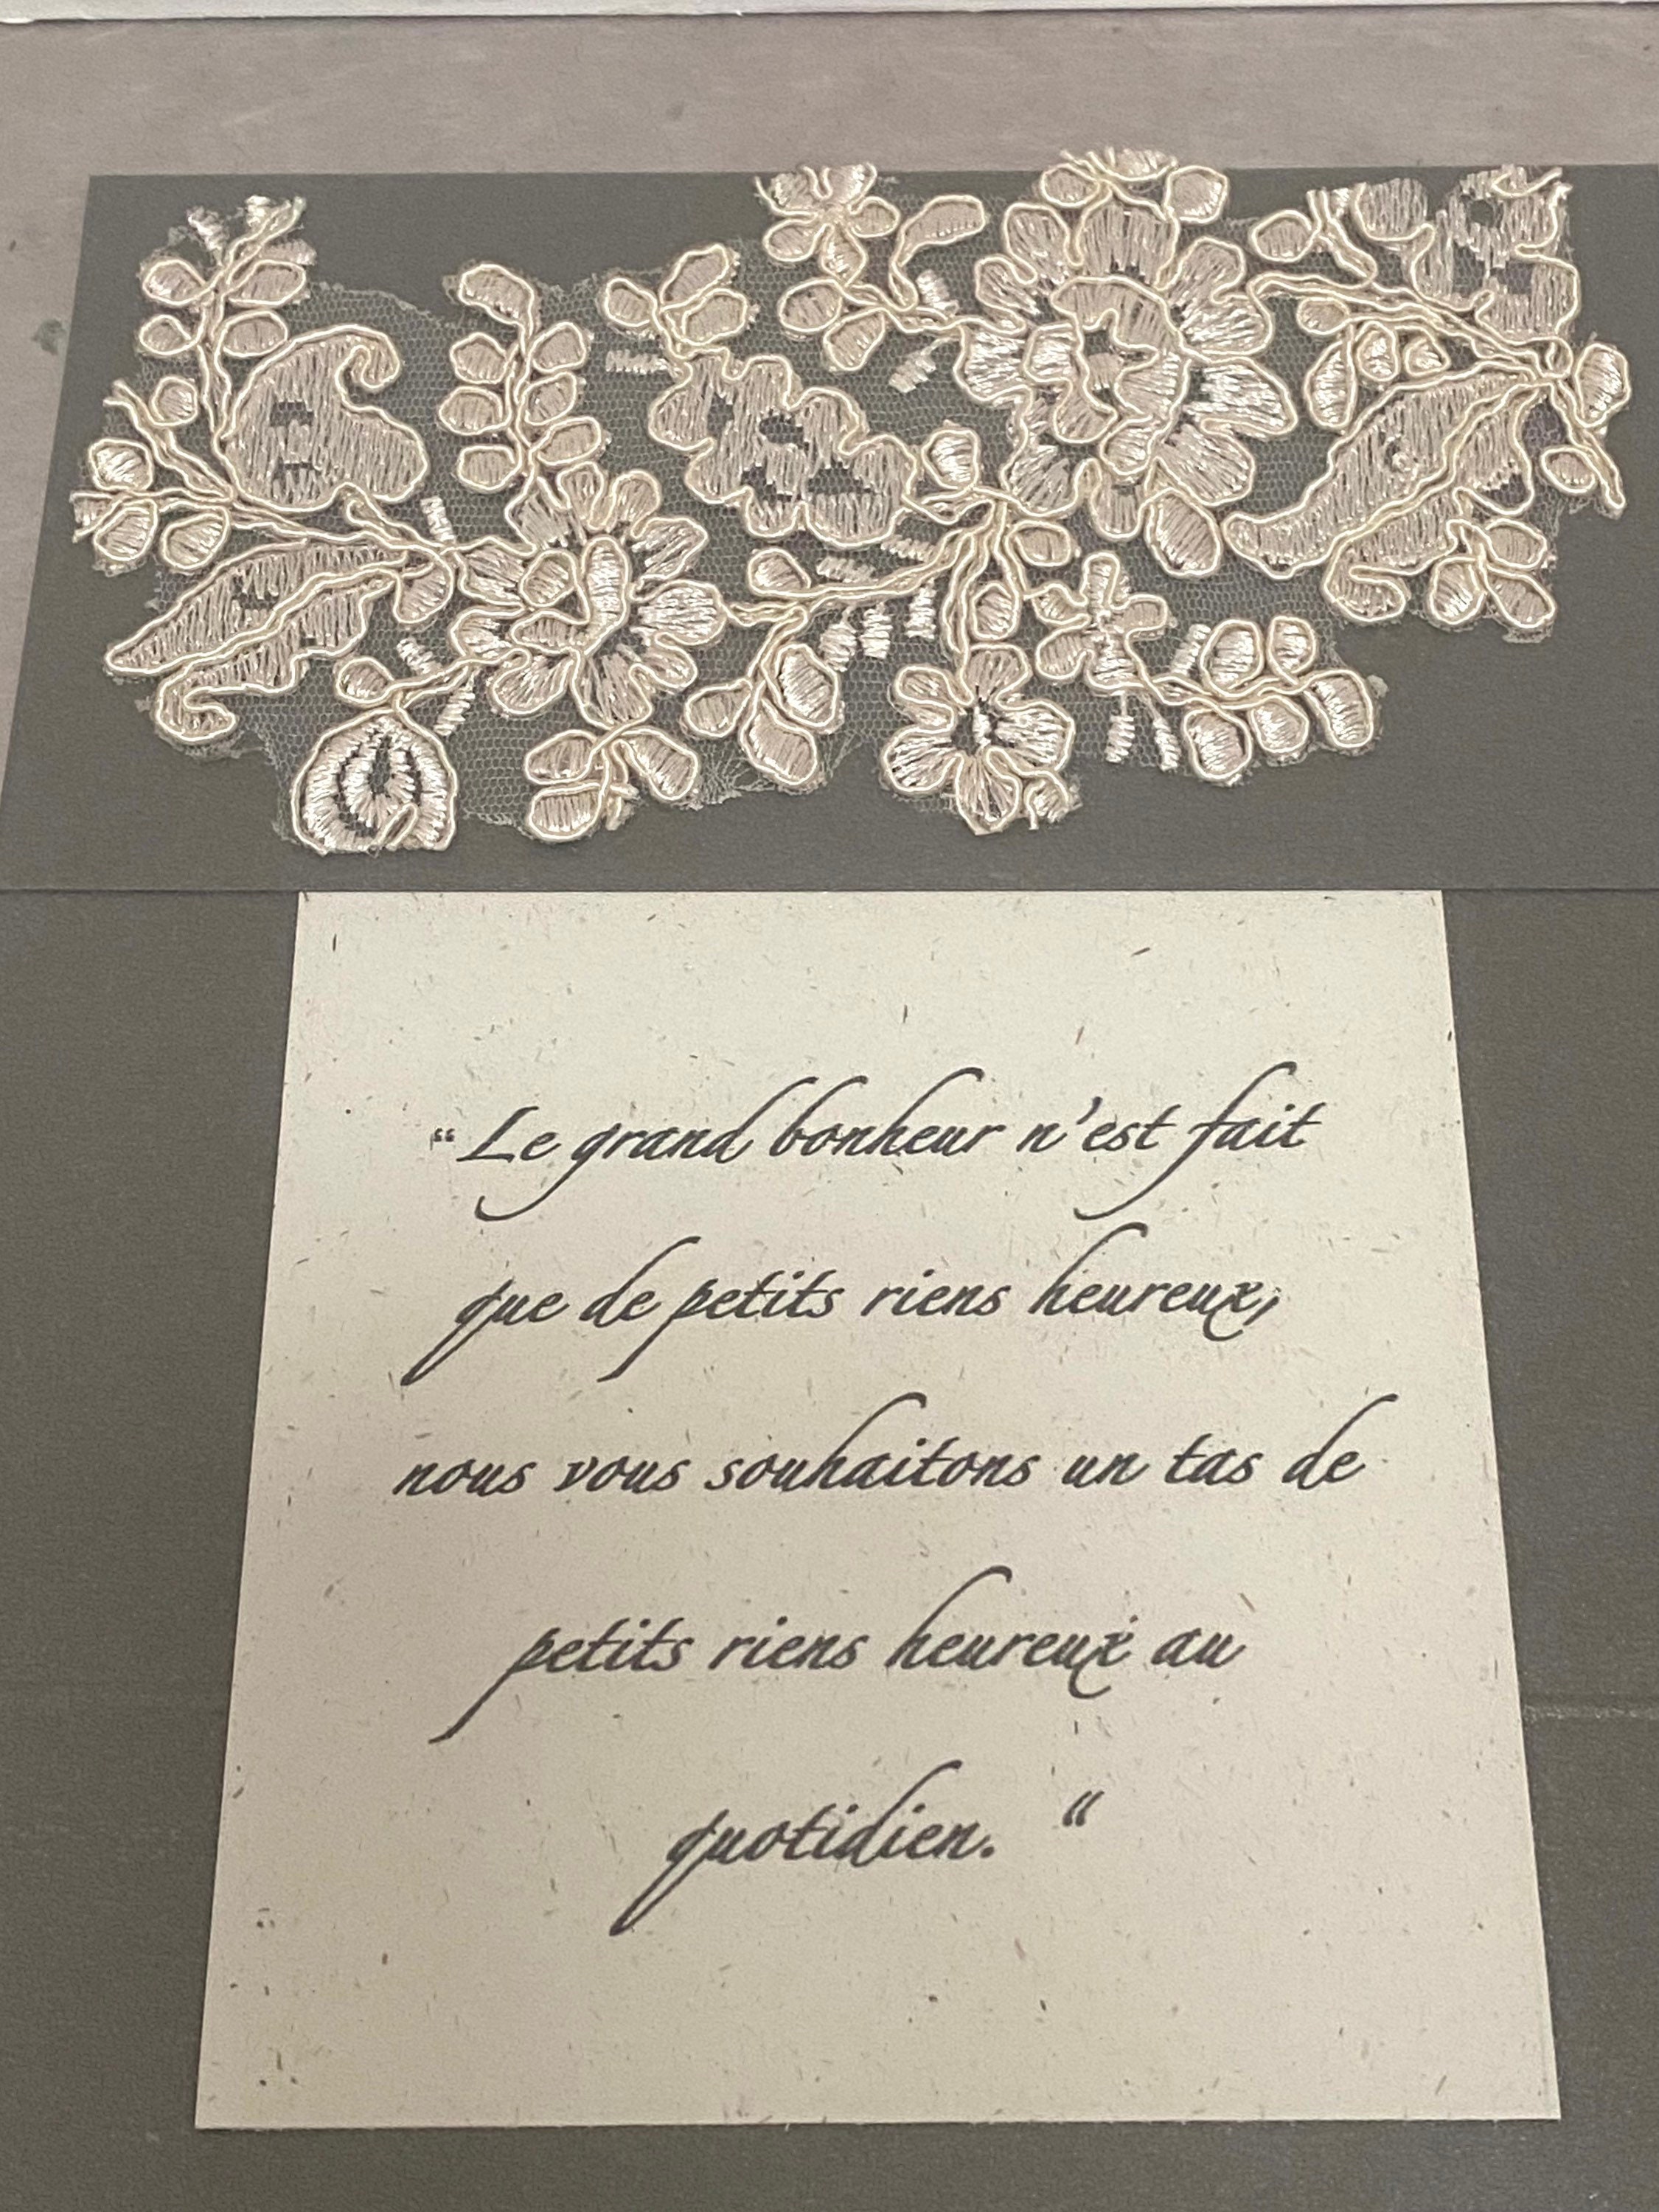 “Le grand bonheur n’est fait
que de petits riens heureux,
nous vous souhaitons un tas de
petits riens heureux au
quotidien. “